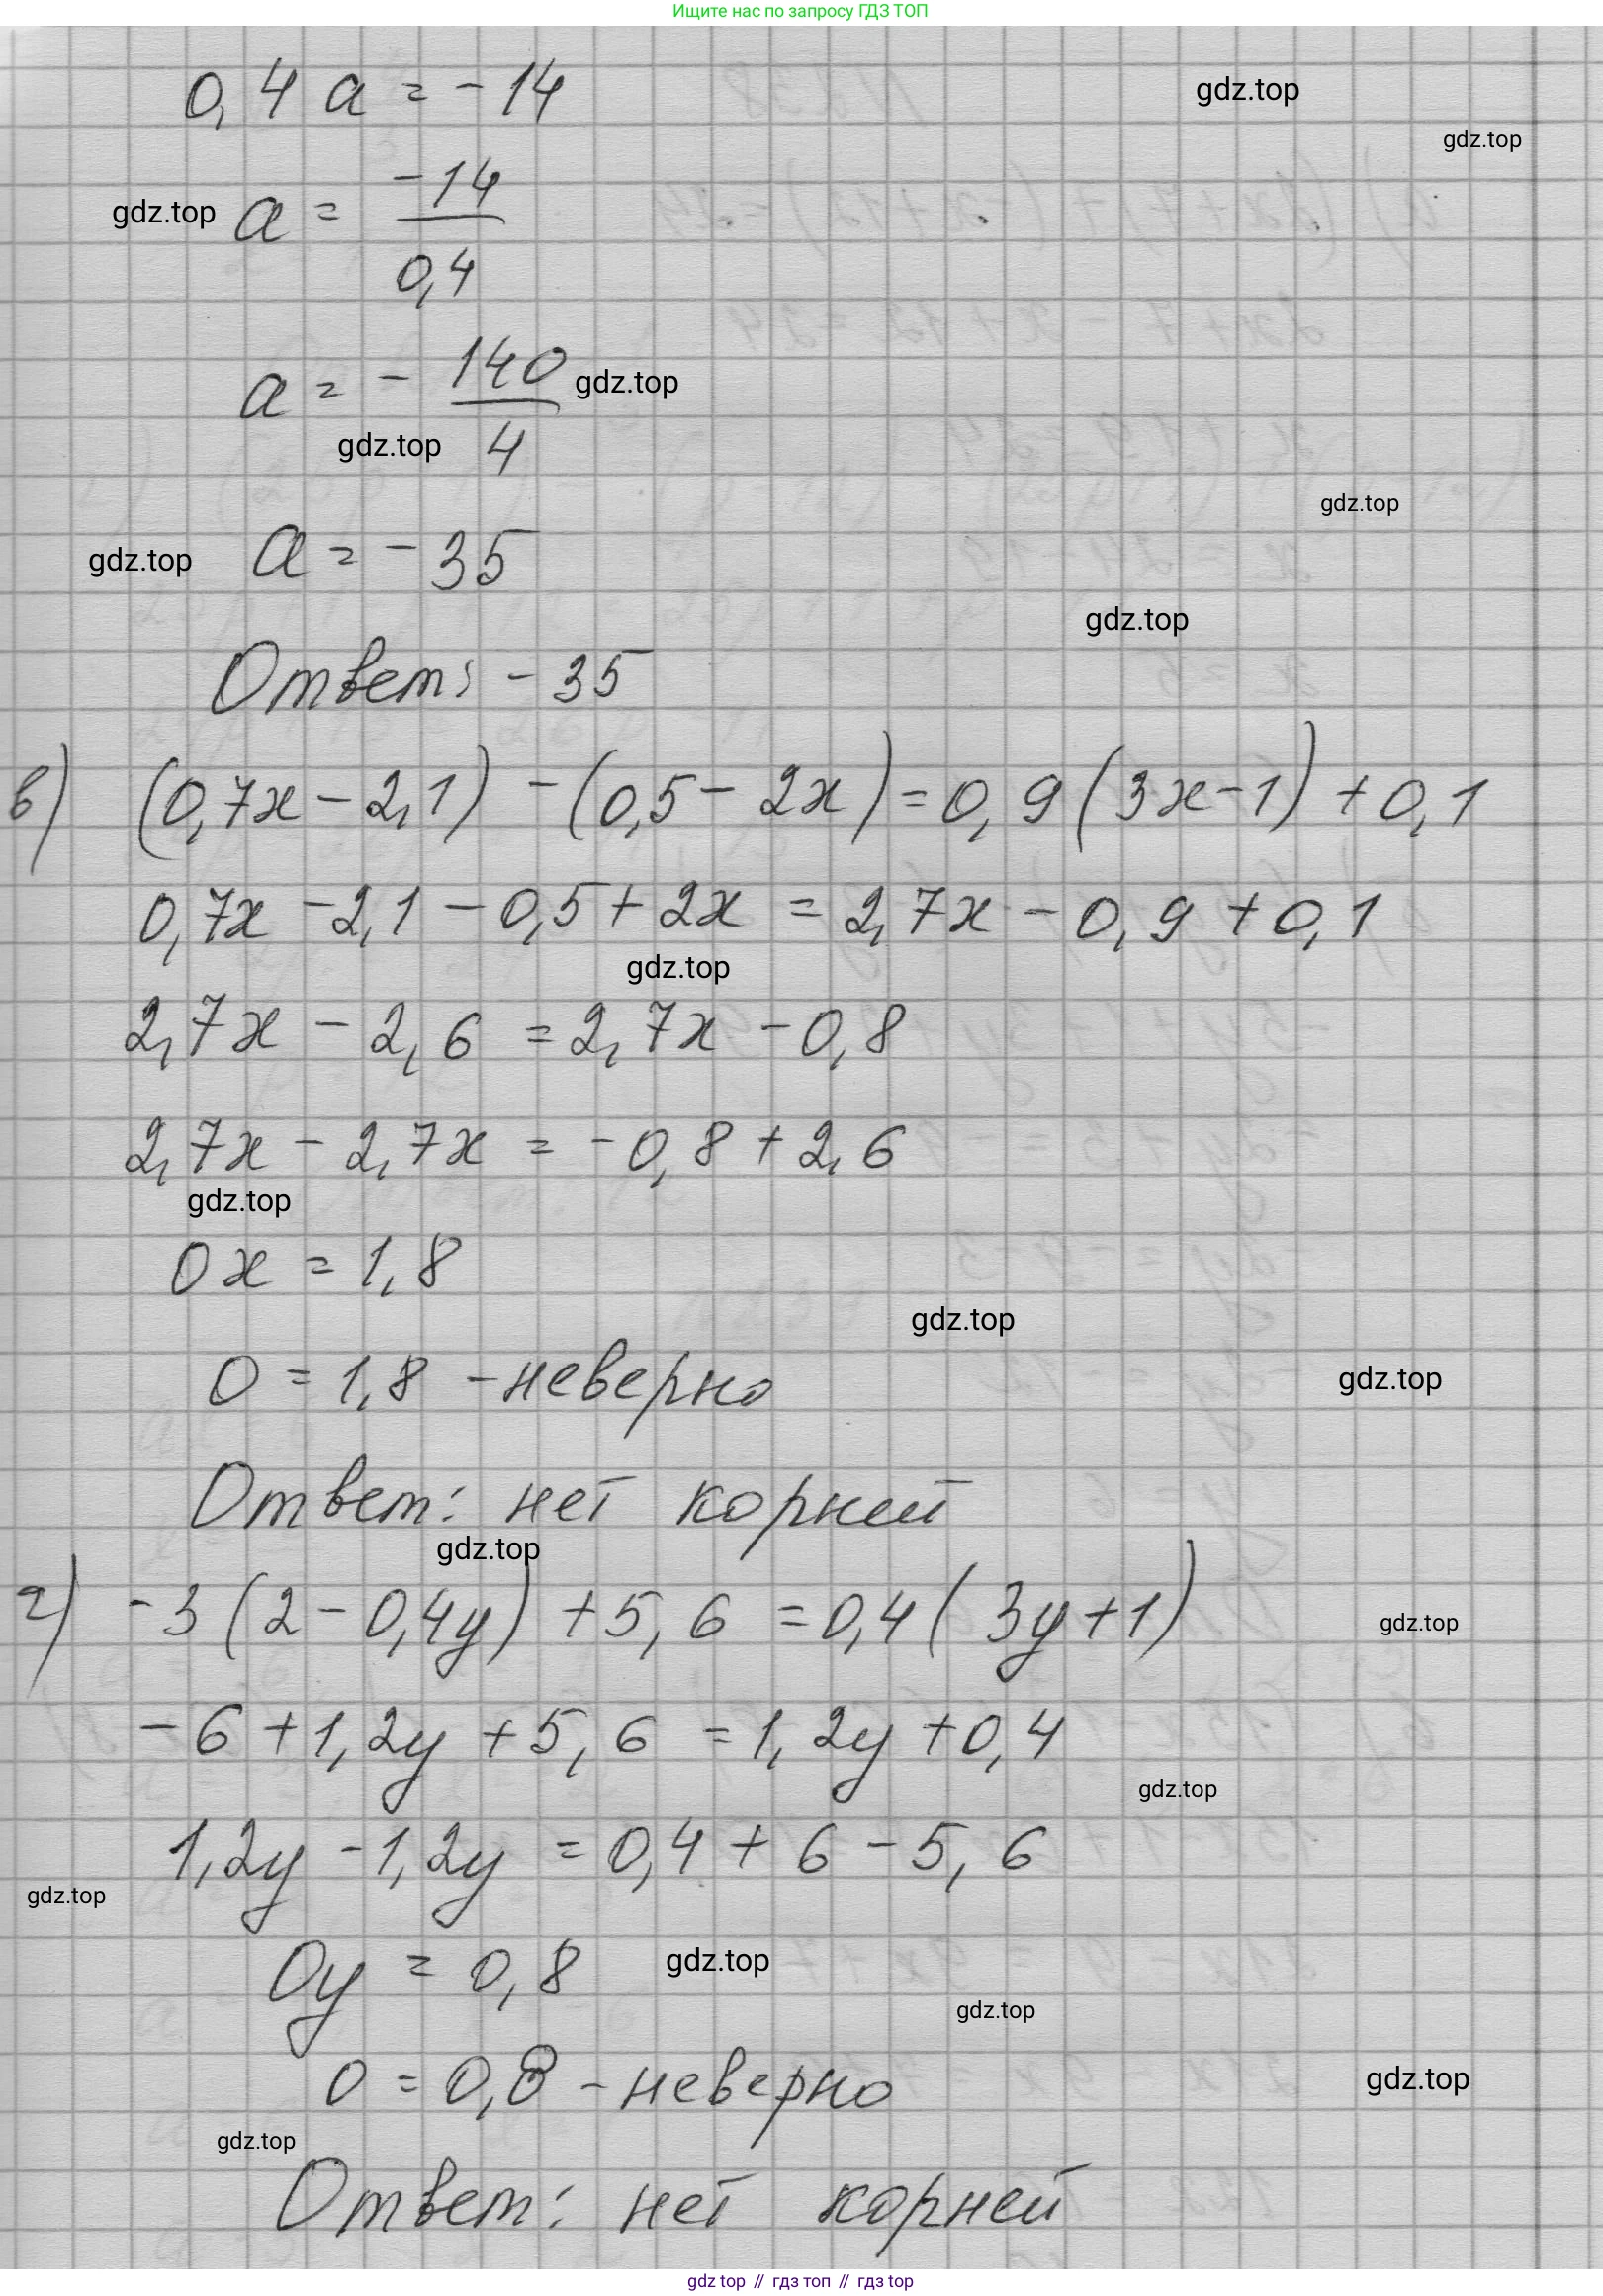 Ищите нас по запросу ГДЗ ТОП
0,4 a = -14
gdz.top
gdz.top
gdz.top a = -14/0,4
a = - 140/4 gdz.top
gdz.top
gdz.top
gdz.top a = -35
gdz.top
Ответ: -35
в) (0,7x - 2,1) - (0,5 - 2x) = 0,9(3x-1) + 0,1
0,7x - 2,1 - 0,5 + 2x = 2,7x - 0,9 + 0,1
gdz.top
2,7x - 2,6 = 2,7x - 0,8
2,7x - 2,7x = -0,8 + 2,6
gdz.top
0x = 1,8
gdz.top
0 = 1,8 - неверно
gdz.top
Ответ: нет корней
gdz.top
г) -3(2 - 0,4y) + 5,6 = 0,4(3y+1)
gdz.top
-6 + 1,2y + 5,6 = 1,2y + 0,4
gdz.top
1,2y - 1,2y = 0,4 + 6 - 5,6
gdz.top
0y = 0,8 gdz.top
gdz.top
0 = 0,8 - неверно
gdz.top
gdz.top
Ответ: нет корней
gdz top // гдз топ // гдз top